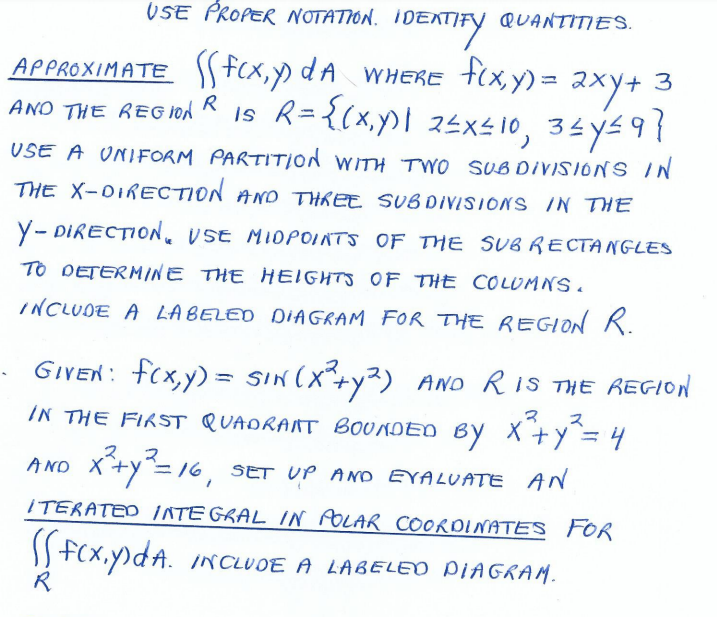 USE PROPER NOTATION. IDENTIFY QUANTITIES.
APPROXIMATE ∬f(x,y) dA WHERE f(x,y) = 2xy + 3
AND THE REGION R IS R = {(x,y)| 2≤x≤10, 3≤y≤9}
USE A UNIFORM PARTITION WITH TWO SUBDIVISIONS IN
THE X-DIRECTION AND THREE SUBDIVISIONS IN THE
Y-DIRECTION. USE MIDPOINTS OF THE SUBRECTANGLES
TO DETERMINE THE HEIGHTS OF THE COLUMNS.
INCLUDE A LABELED DIAGRAM FOR THE REGION R.
GIVEN: f(x,y) = SIN(x²+y²) AND R IS THE REGION
IN THE FIRST QUADRANT BOUNDED BY x²+y²=4
AND x²+y²=16, SET UP AND EVALUATE AN
ITERATED INTEGRAL IN POLAR COORDINATES FOR
∬f(x,y)dA. INCLUDE A LABELED DIAGRAM.
R